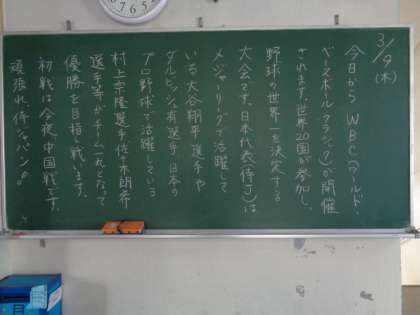 3/9(木)
今日からWBC(ワールド・
ベースボールクラシック)が開催
されます。世界20国が参加し、
野球の世界一を決定する
大会です。日本代表(侍J)は
メジャーリーグで活躍して
いる大谷翔平選手や
ダルビッシュ有選手、日本の
プロ野球で活躍している
村上宗隆選手、佐々木朗希
選手等がチーム一丸となって
優勝を目指し戦います。
初戦は今夜、中国戦です。
頑張れ、侍ジャパン!!